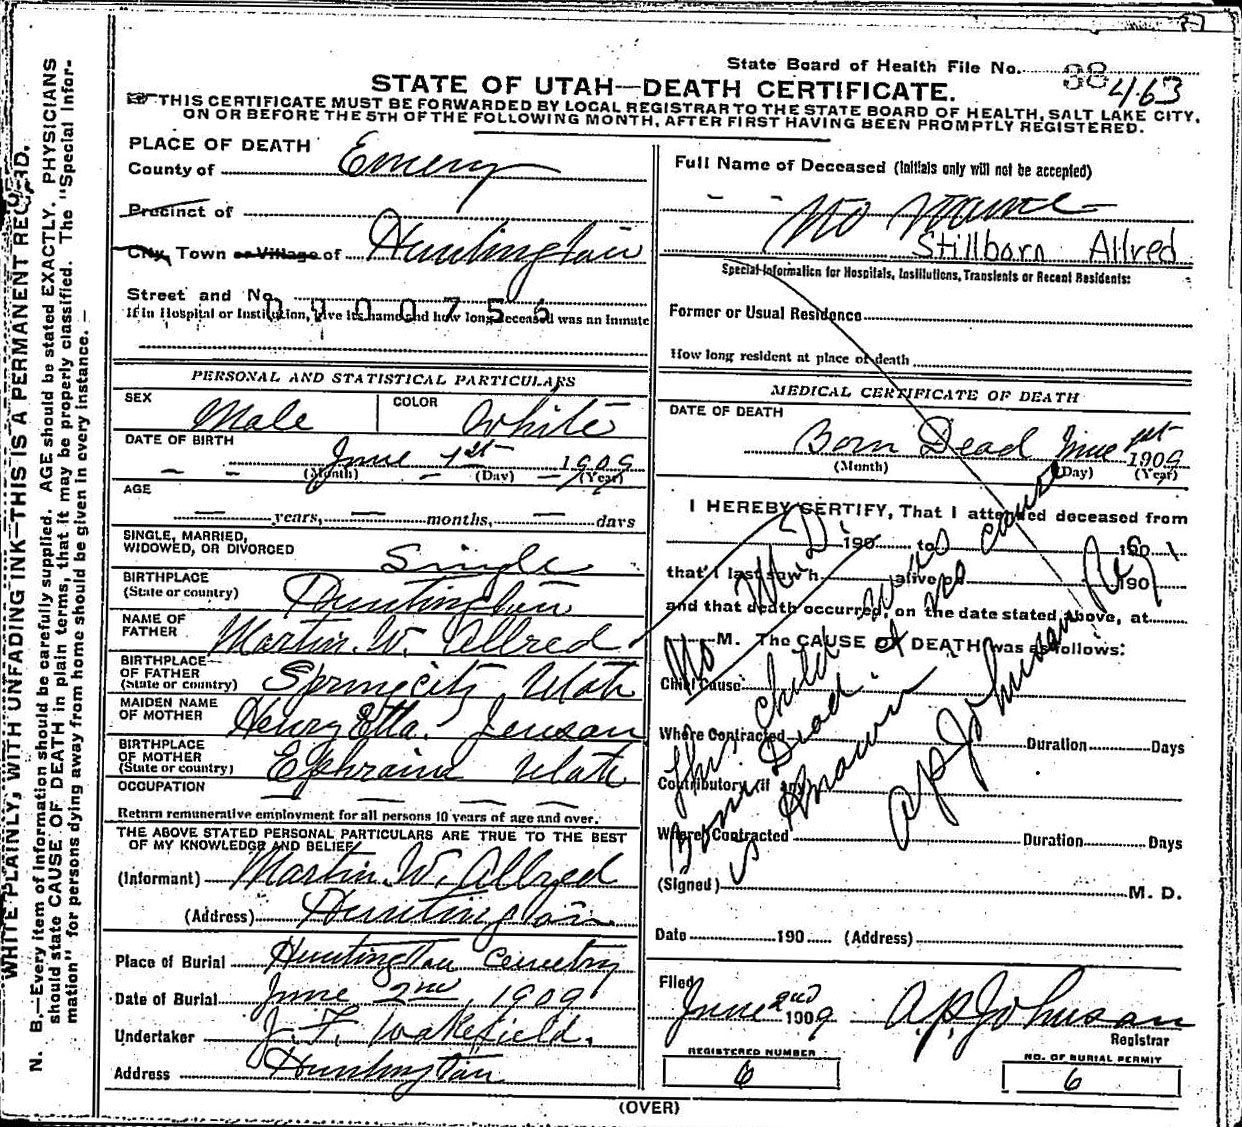 State Board of Health File No. 88 463
STATE OF UTAH—DEATH CERTIFICATE.
THIS CERTIFICATE MUST BE FORWARDED BY LOCAL REGISTRAR TO THE STATE BOARD OF HEALTH, SALT LAKE CITY,
ON OR BEFORE THE 5TH OF THE FOLLOWING MONTH, AFTER FIRST HAVING BEEN PROMPTLY REGISTERED.
WRITE PLAINLY, WITH UNFADING INK—THIS IS A PERMANENT RECORD.
N. B.—Every item of information should be carefully supplied. AGE should be stated EXACTLY. PHYSICIANS
should state CAUSE OF DEATH in plain terms, that it may be properly classified. The "Special Infor-
mation" for persons dying away from home should be given in every instance.
PLACE OF DEATH
County of Emery
Precinct of
City, Town or Village of Huntington
Street and No.
0900756
If in Hospital or Institution, give its name and how long deceased was an Inmate
PERSONAL AND STATISTICAL PARTICULARS
SEX Male COLOR White
DATE OF BIRTH
June 1st 1909
(Month) (Day) (Year)
AGE
years, months, days
SINGLE, MARRIED,
WIDOWED, OR DIVORCED Single
BIRTHPLACE
(State or country) Huntington
NAME OF
FATHER Martin. W. Allred
BIRTHPLACE
OF FATHER
(State or country) Spring city Utah
MAIDEN NAME
OF MOTHER Henry Etta. Jenson
BIRTHPLACE
OF MOTHER
(State or country) Ephraim Utah
OCCUPATION
Return remunerative employment for all persons 10 years of age and over.
THE ABOVE STATED PERSONAL PARTICULARS ARE TRUE TO THE BEST
OF MY KNOWLEDGE AND BELIEF
(Informant) Martin. W. Allred
(Address) Huntington
Place of Burial Huntington Cemetry
Date of Burial June 2nd, 1909
Undertaker J. F. Wakefield.
Address Huntington
Full Name of Deceased (Initials only will not be accepted)
No Name
Stillborn Allred
Special Information for Hospitals, Institutions, Transients or Recent Residents:
Former or Usual Residence
How long resident at place of death
MEDICAL CERTIFICATE OF DEATH
DATE OF DEATH
Born Dead June 1st 1909
(Month) (Day) (Year)
I HEREBY CERTIFY, That I attended deceased from
190 to 190
that I last saw h alive on 190
and that death occurred, on the date stated above, at
M. The CAUSE OF DEATH was as follows:
Chief Cause
Where Contracted Duration Days
Contributory (if any)
Where Contracted Duration Days
(Signed) M. D.
Date 190 (Address)
No M. D.
The child was
Born Dead. no cause
is known
A P Johnson Reg
Filed
June 2nd 1909 A. P. Johnson
Registrar
REGISTERED NUMBER
6
NO. OF BURIAL PERMIT
6
(OVER)